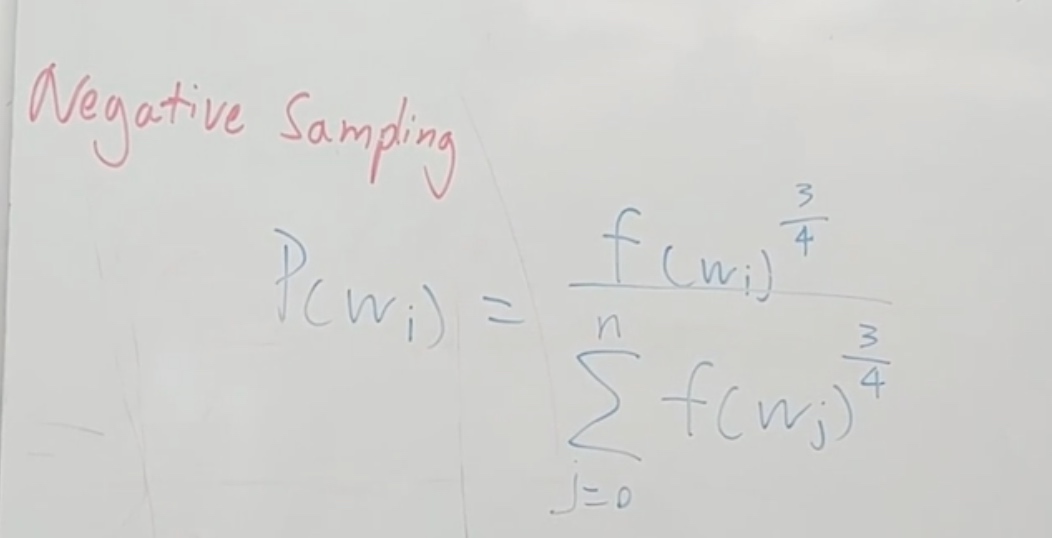 Negative Sampling
P(wi) = f(wi)^3/4 / n∑j=0 f(wj)^3/4